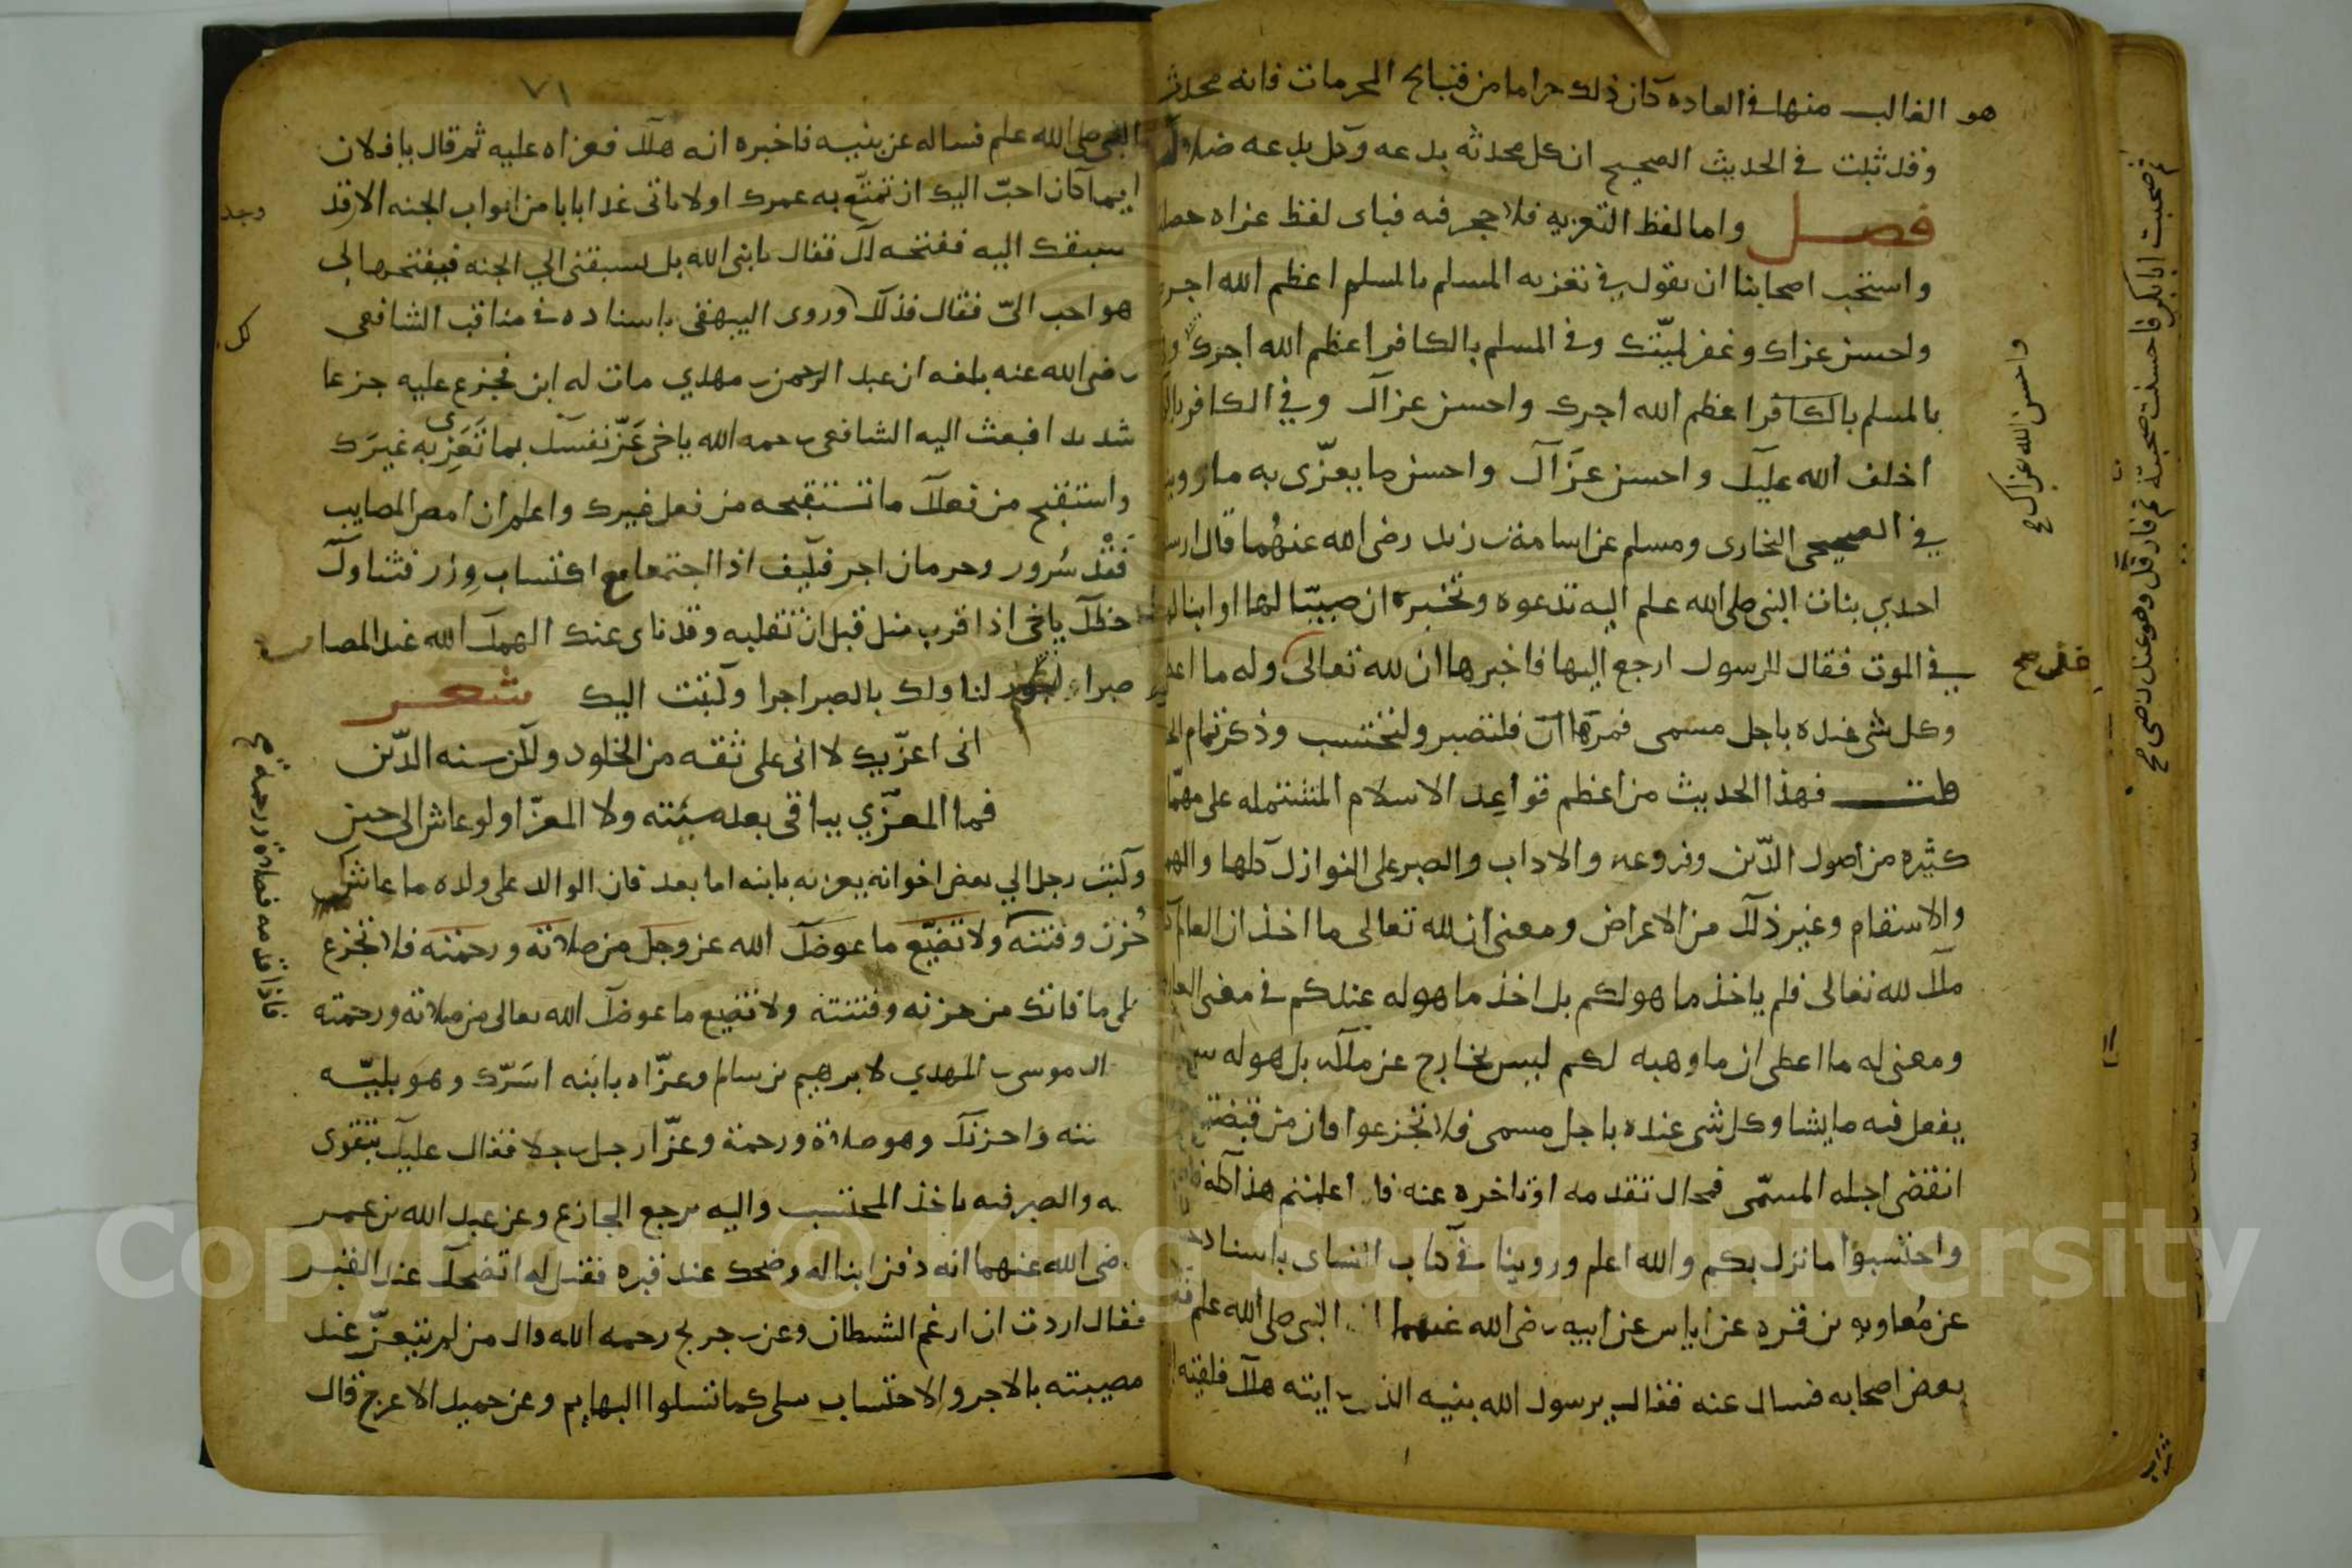 هو الغالب منها في العاده كان ذلك حراما من قبايح المحرمات فانه محدث
وقد ثبت في الحديث الصحيح ان كل محدثه بدعه وكل بدعه ضلاله
فصل واما لفظ التعزيه فلا حجر فيه فباى لفظ عزاه حصلت
واستحب اصحابنا ان يقول في تعزيه المسلم بالمسلم اعظم الله اجرك
واحسن عزاك وغفر لميّتك وفي المسلم بالكافر اعظم الله اجرك
بالمسلم بالكافر اعظم الله اجرك واحسن عزاك وفي الكافر
اخلف الله عليك واحسن عزَآك واحسن ما يعزّى به ما روينا
في الصحيحي البخارى ومسلم عن اسامة بن زيد رضى الله عنهُما قال ارسلت
احدي بنات النبى صلى الله علم اليه تدعوه وتخبره ان صبيّا لها او ابنا لها
في الموت فقال للرسول ارجع اليها فاخبرها ان لله تعالى وله ما اعطى
وكل شى عنده باجل مسمى فمرها فلتصبر ولتحتسب وذكر تمام
قلت فهذا الحديث من اعظم قواعِد الاسلام المشتمله على مهمّات
كثيره من اصول الدّين وفروعه والاداب والصبر على النوازل كلها والهموم
والاسقام وغير ذلك من الاعراض ومعنى ان لله تعالى ما اخذ ان العالم
ملك لله تعالى فلم ياخذ ما هو لكم بل اخذ ما هو له عندكم في معنى
ومعنى له ما اعطى ان ما وهبه لكم ليس بخارج عن ملكه بل هو له
يفعل فيه ما يشا وكل شى عنده باجل مسمى فلا تجزعوا فان من قبضه
انقضى اجله المسمّى فمحال تقدمه او تاخره عنه فاذا علمتم هذا كله
واحتسبوا ما نزل بكم والله اعلم وروينا في كتاب النساى باسناد
عن مُعاويه بن قره عن اياس عن ابيه رضى الله عنهما ان النبى صلى الله علم
بعض اصحابه فسال عنه فقالو يرسول الله بنيه الذى رايته هلك فلقيه
واحسن الله عزاك صح
صحبت ابابكر فاحسنت صحبته ثم فارقك وهو عنك راضى صح
٧١
النبى صلى الله علم فساله عن بنيه فاخبره انه هلك فعزاه عليه ثم قال يا فلان
ايما كان احبّ اليك ان تمتّع به عمرك او لا ياتى غدا بابا من ابواب الجنه الا قد
سبقك اليه ففتحه لك فقال يا نبى الله بل يسبقنى الي الجنه فيفتحها لى
هو احب الىّ فقال فذلك وروى البيهقى باسناده في مناقب الشافعى
رضى الله عنه بلغه ان عبد الرحمن بن مهدي مات له ابن فجزع عليه جزعا
شديدا فبعث اليه الشافعى رحمه الله ياخى عَزّ نفسك بما تعَزى به غيرَك
واستقبح من فعلك ما تستقبحه من فعل غيرك واعلم ان امض المصايب
فقْد سُرور وحرمان اجر فكيف اذا اجتمعا مع اكتساب وِزر فتناول
حظك ياخى اذا قرب منك قبل ان تقلبه وقد ناى عنك الهمك الله عند المصايب
صبرا لنا ولك بالصبر اجرا وكتبت اليك شعر
انى اعزّيك لا انى على ثقه من الخلود ولكن سنه الدّين
فما المعزّي بباقى بعد ميّته ولا المعزّا ولو عاش الى حين
وكتب رجل الي بعض اخوانه يعزيه بابنه اما بعد فان الوالد على ولده ما عاش
حُزن وفتنه ولا تضيّع ما عوضك الله عز وجل من صلاته ورحمته فلا تجزع
على ما فاتك من حزنه وفتنته ولا تضيع ما عوضك الله تعالى من صلاته ورحمته
ال موسى بن المهدي لابرهيم بن سالم وعزّاه بابنه اسَرّك وهو بليّه
تنه واحزنك وهو صلاة ورحمة وعزّا رجل رجلا فقال عليك بتقوى
ه والصبر فبه ياخذ المحتسب واليه يرجع الجازع وعن عبد الله بن عمر
رضى الله عنهما انه دفن ابنا له وضحك عند قبره فقيل له اتضحك عند القبر
فقال اردت ان ارغم الشيطان وعن بن جريج رحمه الله قال من لم يتعزّ عند
مصيبته بالاجر والاحتساب سلى كما تسلوا البهايم وعن حميد الاعرج قال
فاذا قدمه فصلاة ورحمة صح